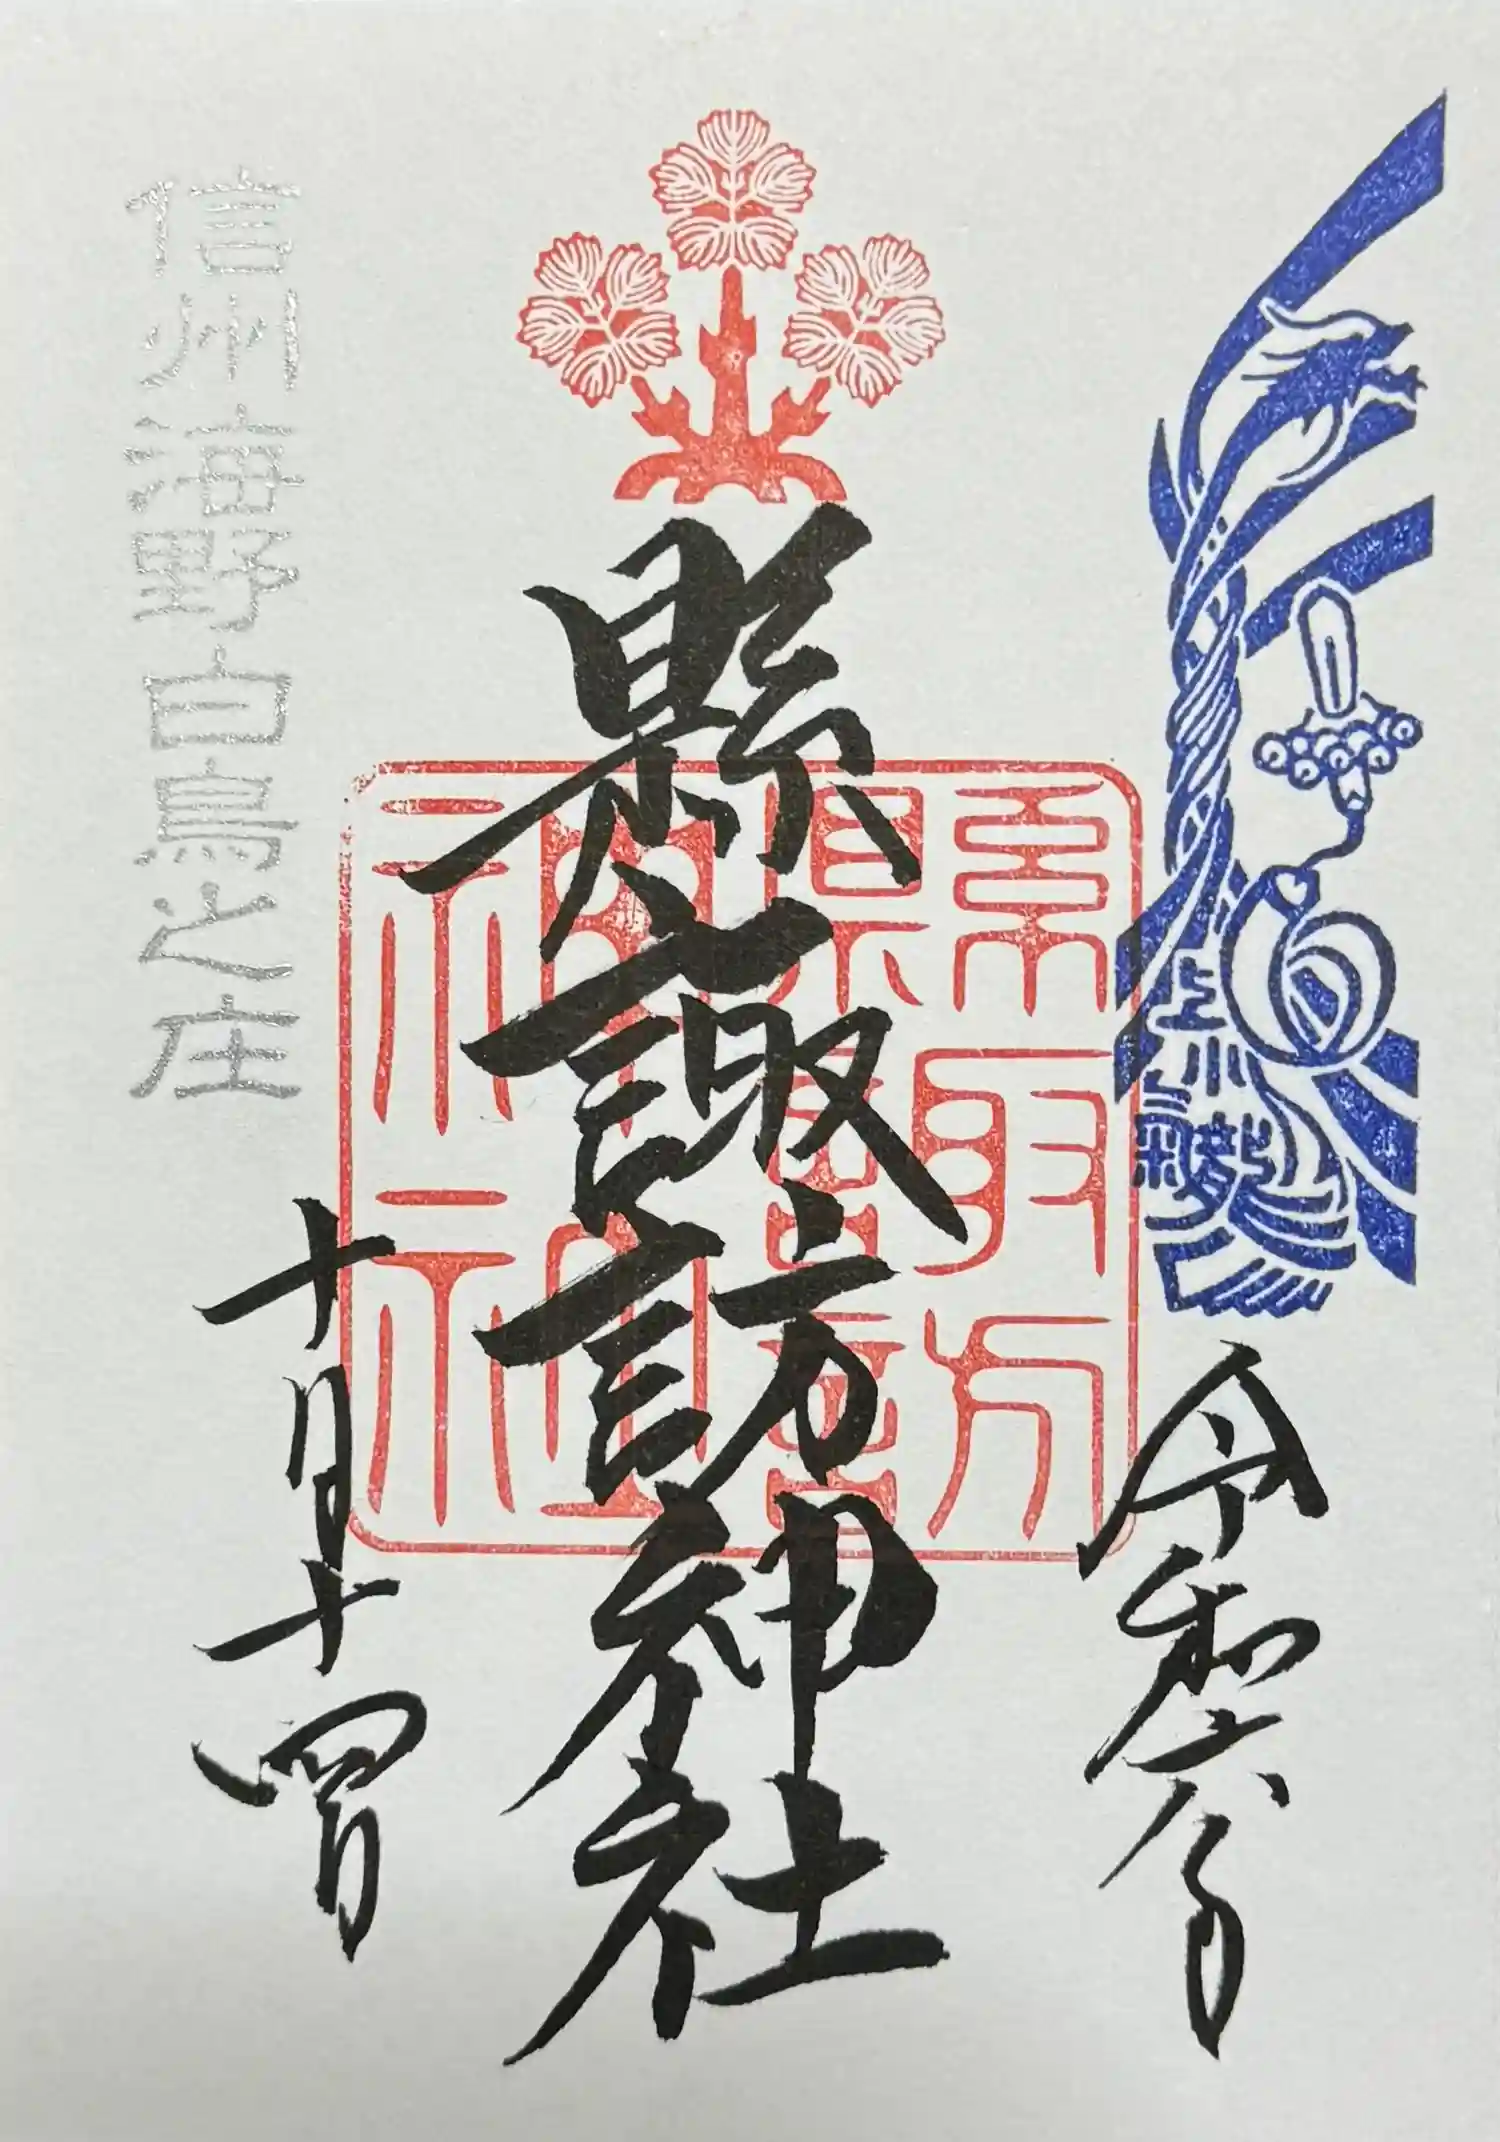 上小
令和六年
縣諏訪神社
縣諏訪
神社
信州海野白鳥之庄
十月十四日